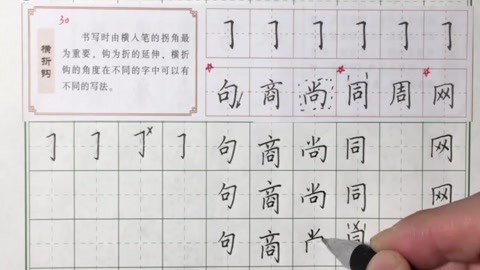 30
横折钩
书写时由横入笔的拐角最
为重要，钩为折的延伸，横折
钩的角度在不同的字中可以有
不同的写法。
㇆ ㇆ ㇆ ㇆ ㇆ ㇆
句 商 尚 同 周 网
㇆ ㇆ ㇆ ㇆ 句 商 尚 同 网
句 商 尚 同 网
句 商 尚 同